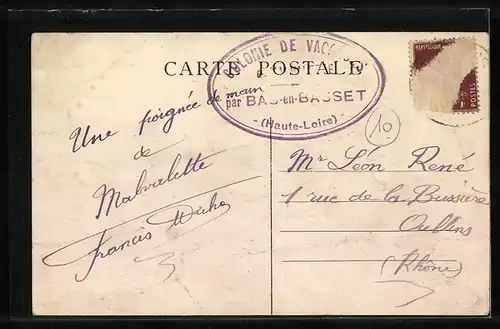 COLONIE DE VAC
CARTE POSTALE
par BAS-en-BASSET
- (Haute-Loire) -
REPUBLIQUE
POSTES
10
Une poignée de main
de
Malvalette
Francis
Mr Léon René
1 rue de la Bussière
Oullins
(Rhône)